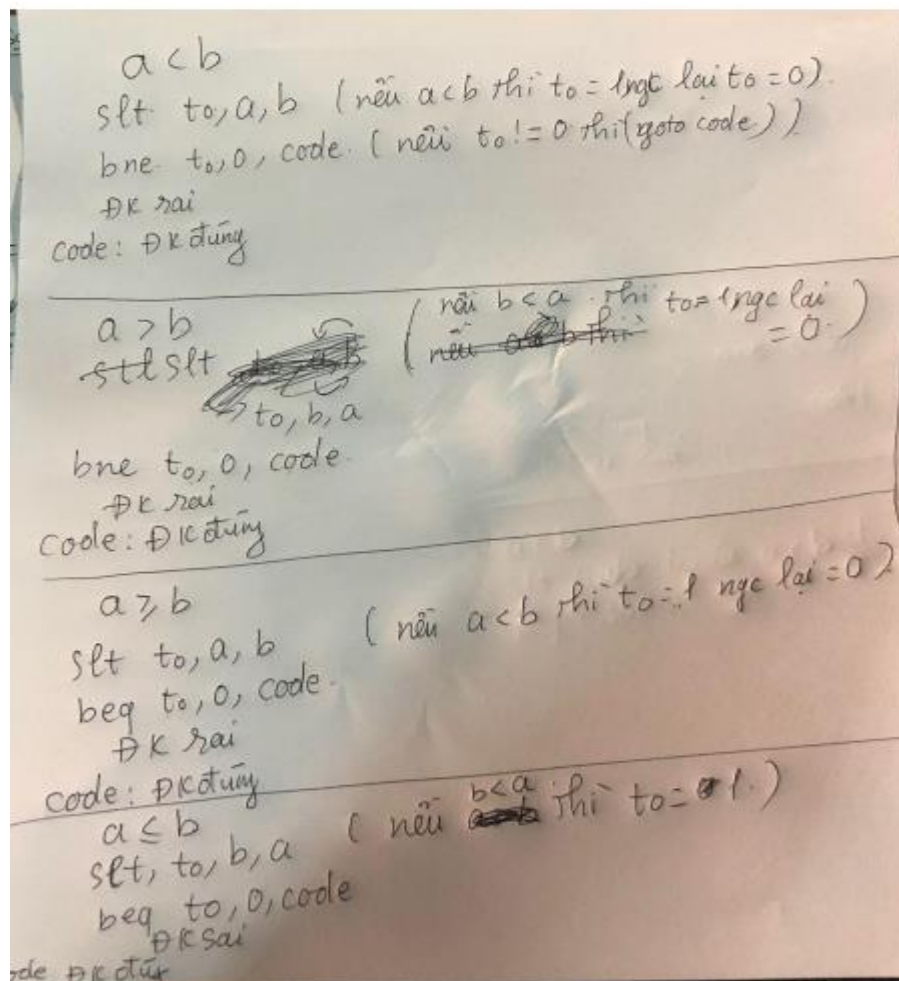 a < b
slt to, a, b (nếu a<b thì to = 1 ngc lại to = 0).
bne to, 0, code. (nếu to != 0 thì (goto code))
ĐK sai
code: ĐK đúng
a > b (nếu b < a thì to = 1 ngc lại = 0.)
stl slt nếu b thì
to, b, a
bne to, 0, code.
ĐK sai
code: ĐK đúng
a ≥ b
slt to, a, b (nếu a < b thì to = 1 ngc lại = 0)
beq to, 0, code.
ĐK sai
code: ĐK đúng
a ≤ b (nếu b<a thì to = 1.)
slt, to, b, a
beq to, 0, code
ĐK sai
ode ĐK đún